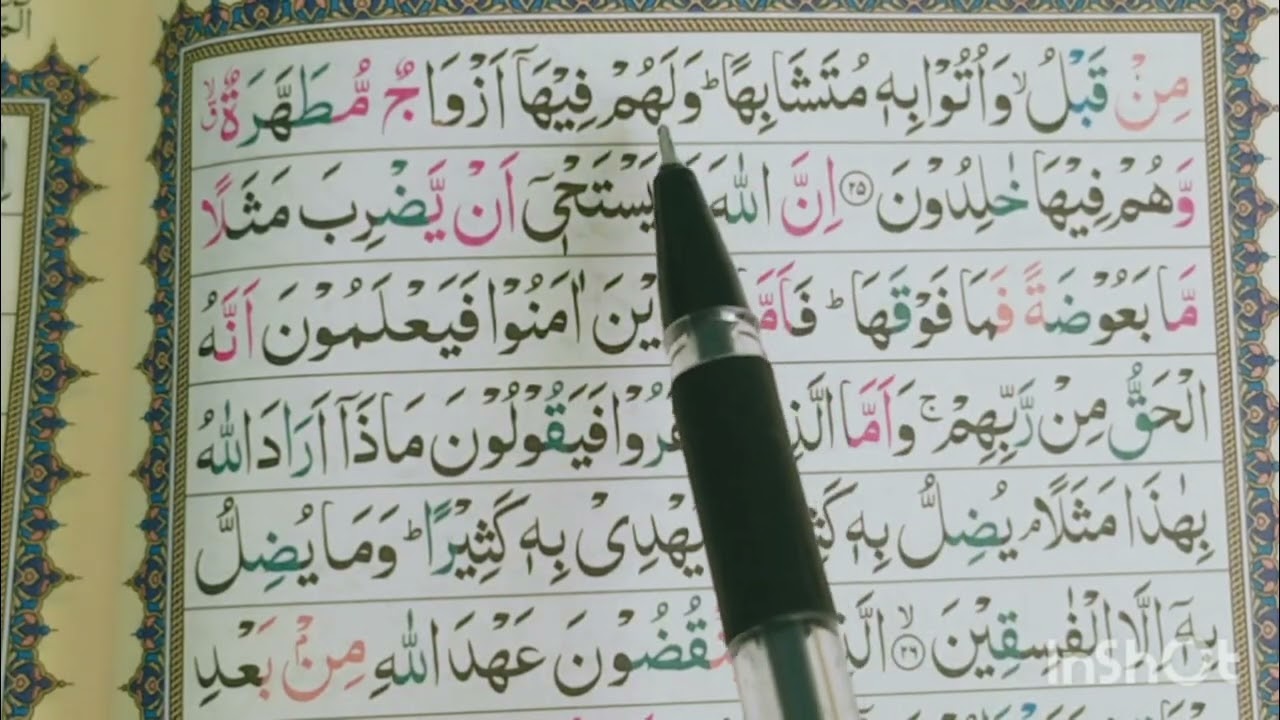 مِنْ قَبْلُ ۙ وَاُتُوْا بِهٖ مُتَشَابِهًا ؕ وَلَهُمْ فِيْهَاۤ اَزْوَاجٌ مُّطَهَّرَةٌ ۙ ق
وَّهُمْ فِيْهَا خٰلِدُوْنَ ۲۵ اِنَّ اللّٰهَ يَسْتَحْيٖۤ اَنْ يَّضْرِبَ مَثَلًا
مَّا بَعُوْضَةً فَمَا فَوْقَهَا ؕ فَاَمَّا اٰمَنُوْا فَيَعْلَمُوْنَ اَنَّهُ
الْحَقُّ مِنْ رَّبِّهِمْ ۚ وَاَمَّا فَيَقُوْلُوْنَ مَاذَاۤ اَرَادَ اللّٰهُ
بِهٰذَا مَثَلًا ۘ يُضِلُّ بِهٖ يَهْدِىْ بِهٖ كَثِيْرًا ؕ وَمَا يُضِلُّ
بِهٖۤ اِلَّا الْفٰسِقِيْنَ ۙ ۲۶ عَهْدَ اللّٰهِ مِنْۢ بَعْدِ
InShOt